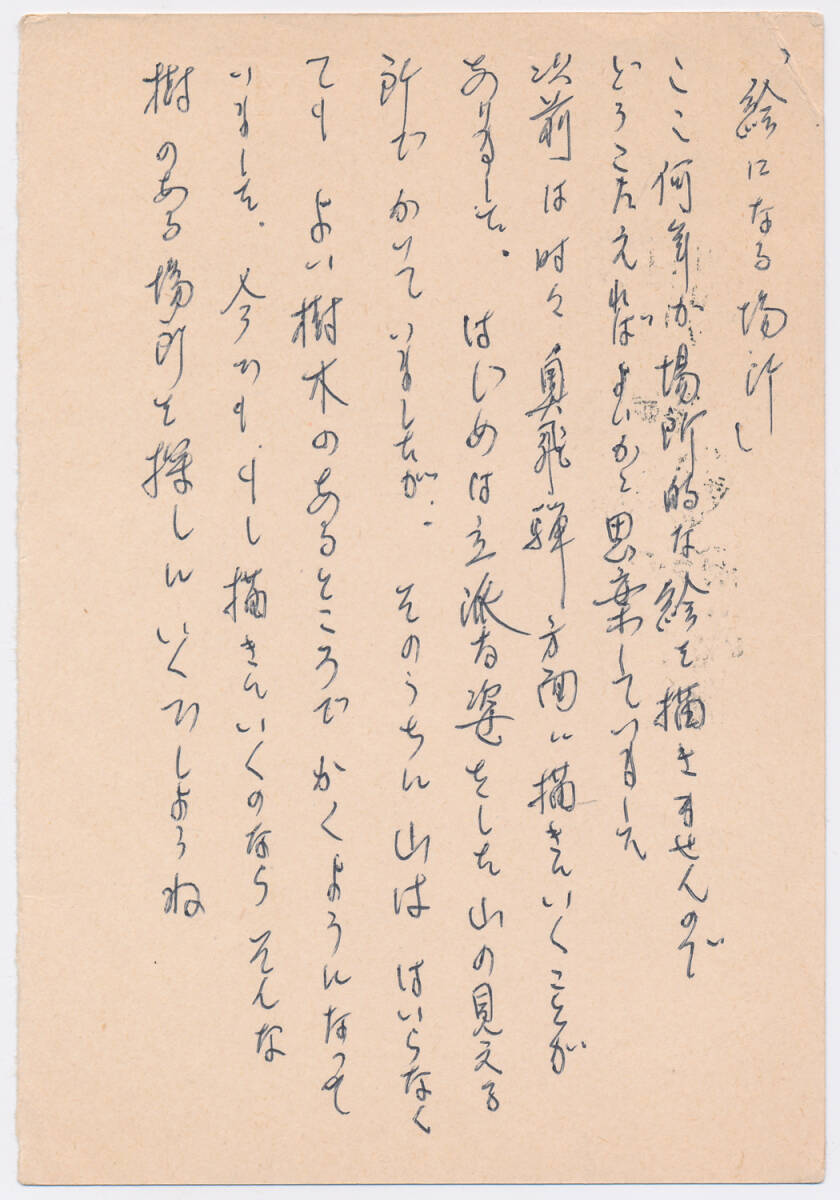 「絵になる場所」
ここ何年か場所的な絵を描きませんので
どうこたえればよいかと思案していました
以前は時々奥飛騨方面に描きにいくことが
ありました。 はじめは立派な姿をした山の見える
所でかいていましたが、 そのうちに山は はいらなく
ても よい樹木のあるところで かくようになって
いました。 今でも、もし描きにいくのなら そんな
樹のある場所を探しにいくでしょうね